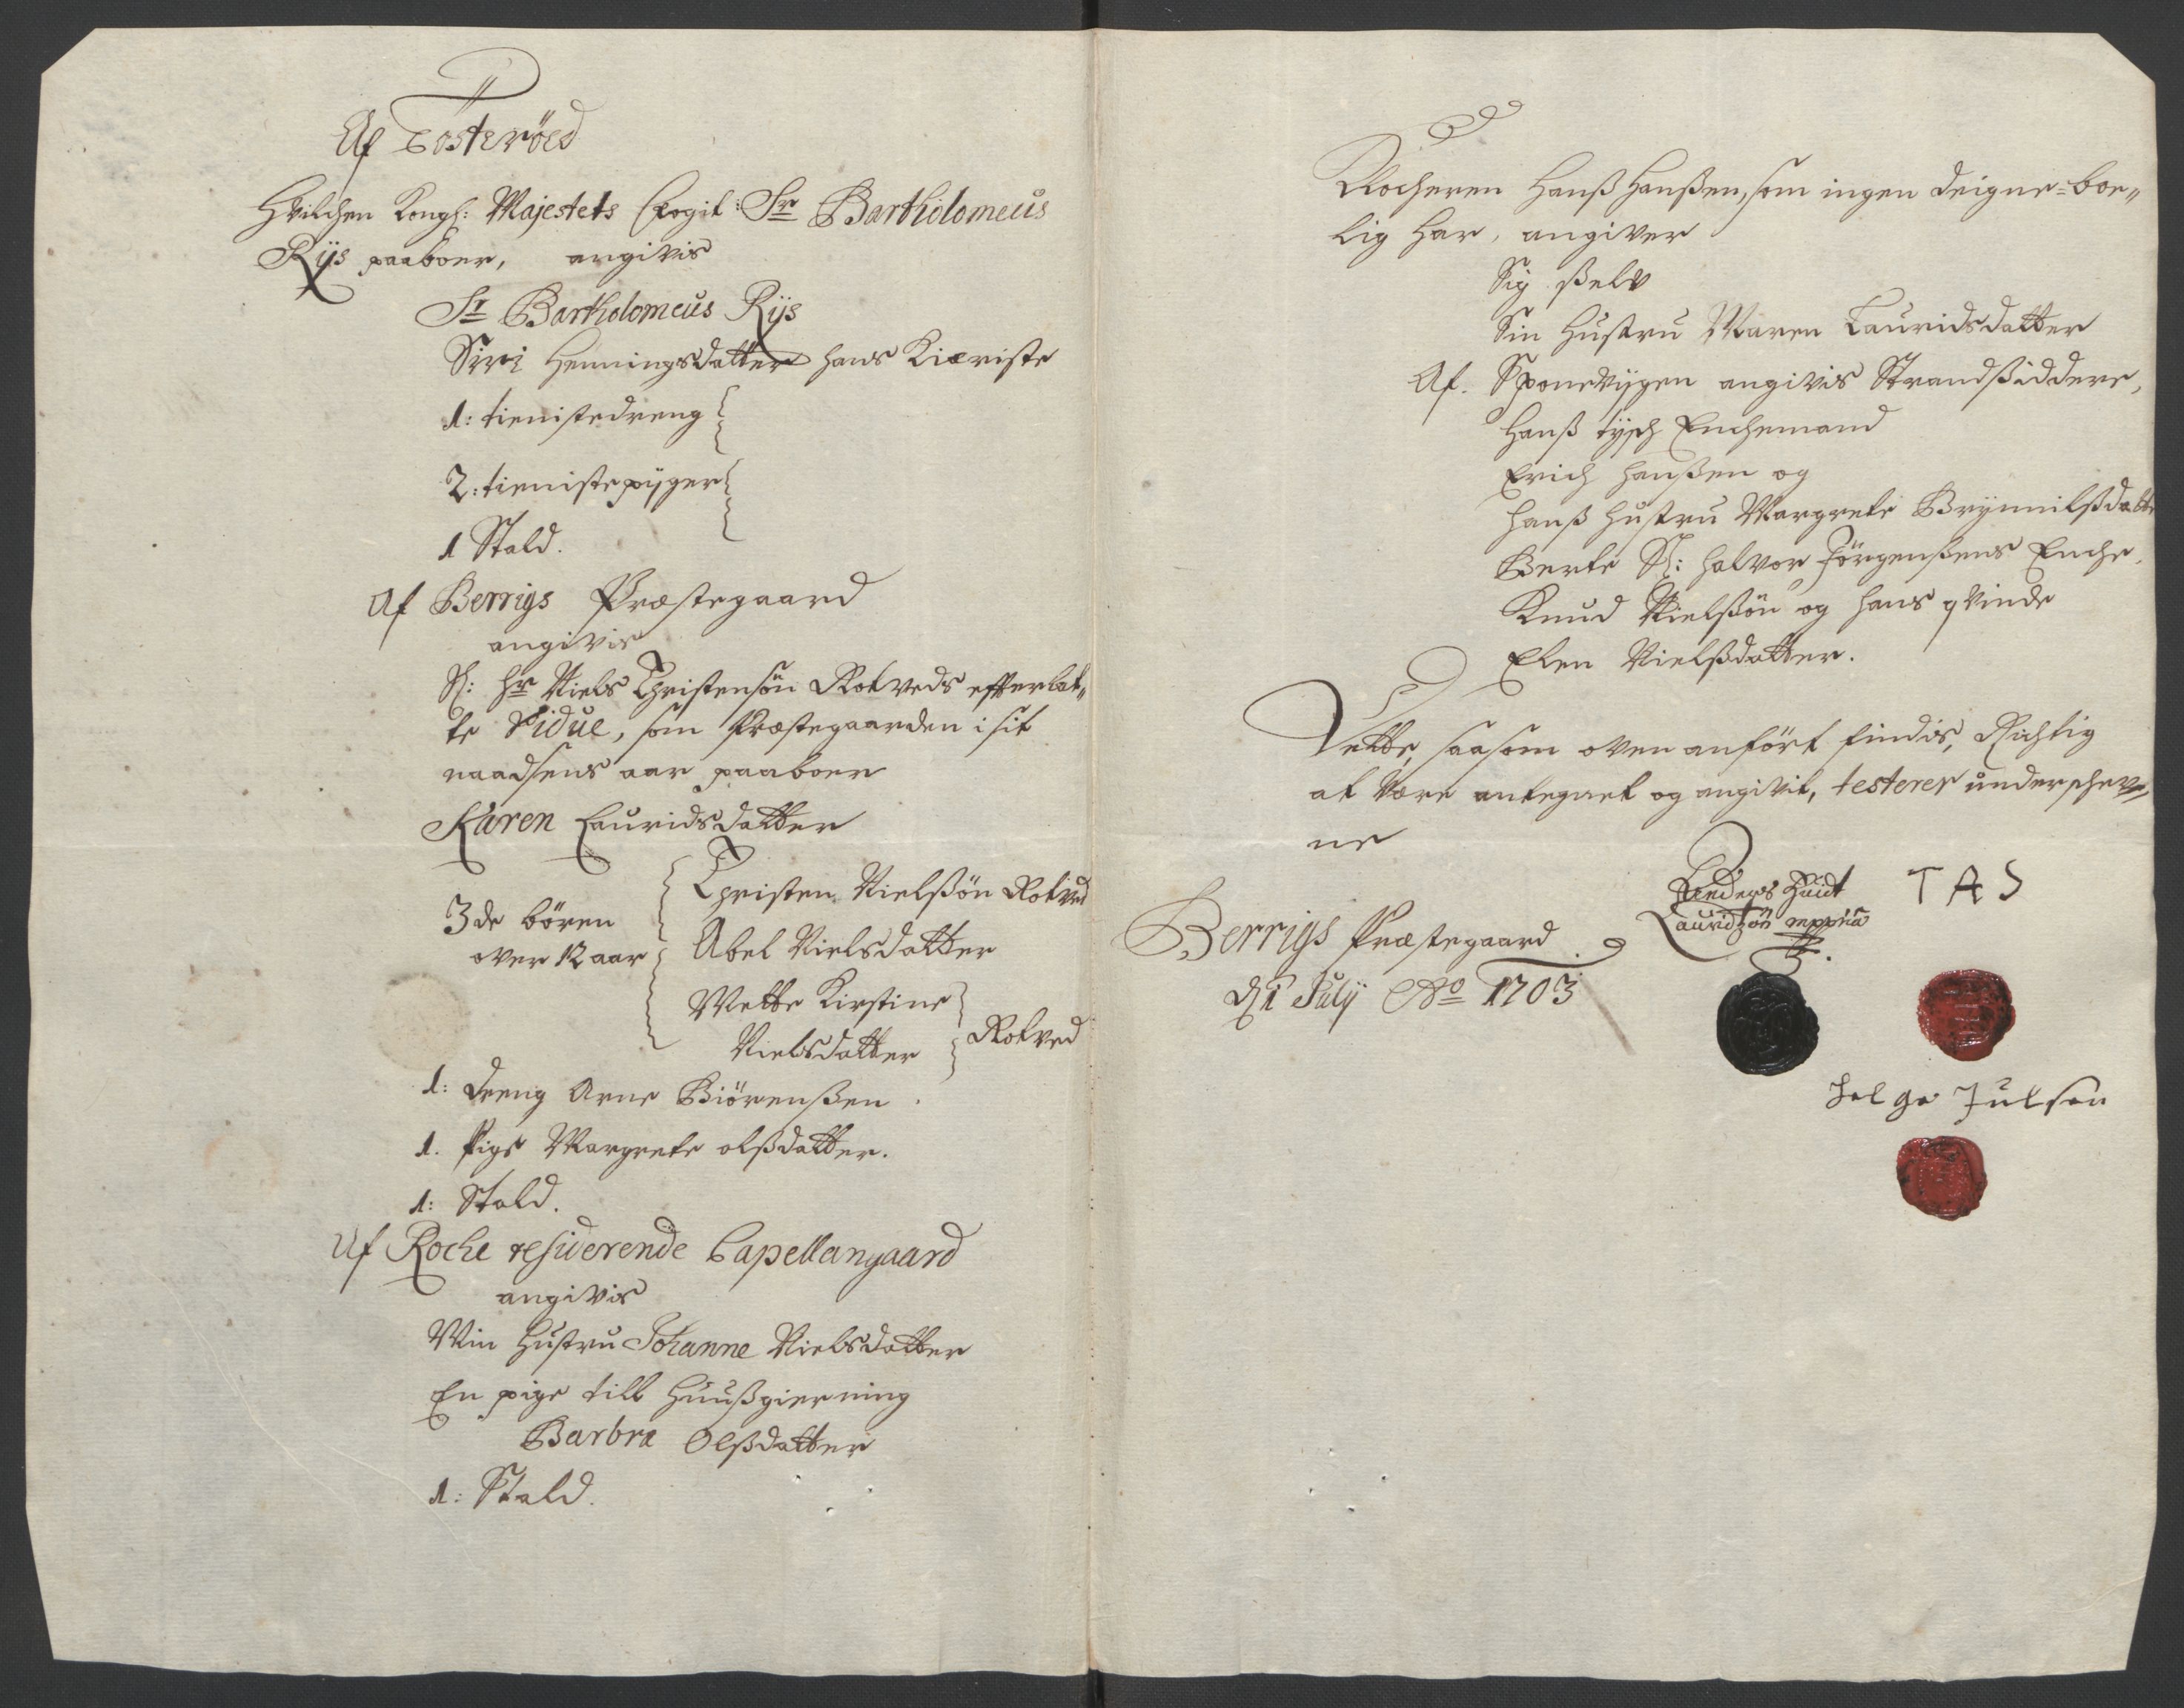 Af Tosteröed
Hvilchen Kongl: Majestets Fogit: Sr Bartholomeus
Rÿs paaboer, angivis
Sr Bartholomeus Rÿs
Siri Henningsdatter hans Kiæriste
1: tienistedreng
2: tienistepÿger
1 Stald.
Af Berrigs Præstegaard
angivis
Sl: Hr Niels Christensøn Rotveds efterlat„
te Vidue, som Præstegaarden i sit
naadsens aar paaboer
Karen Lauridsdatter
3de bören over 12 aar
Christen Nielsßön Rotved
Abel Nielsdatter
Mette Kirstine
Nielsdatter Rotved
1: dreng Arne Biörenßen.
1. Pige Margrete olßdatter.
1: Stald.
Af Roche residerende Capellangaard
angivis
Min Hustru Johanne Nielsdatter
En pige till Huußgierning
Barbra Olßdatter
1: Stald.
Klocheren Hanß Hanßen, som ingen deigne-boe„
lig har, angiver
Sig ßelv
Sin Hustru Maren Lauridsdatter
Af. Sponevijgen angivis Strandßiddere,
Hanß tÿsch Enchemand
Erich Hanßen og
Hanß Hustru Margrete Brÿnnilßdatter
Berte Sl: Halvor Jörgenßens Enche.
Knud Nielßön og hans qvinde
Elen Nielßdatter.
Dette, saasom oven anfört findis, Richtig
at være antegnet og angivit, testerer underschrev„
ne
Berrigs Præstegaard
d 1 Julÿ Ao 1703
Anders Huidt
Lauridßön mppria
TAS
Helge Julsen